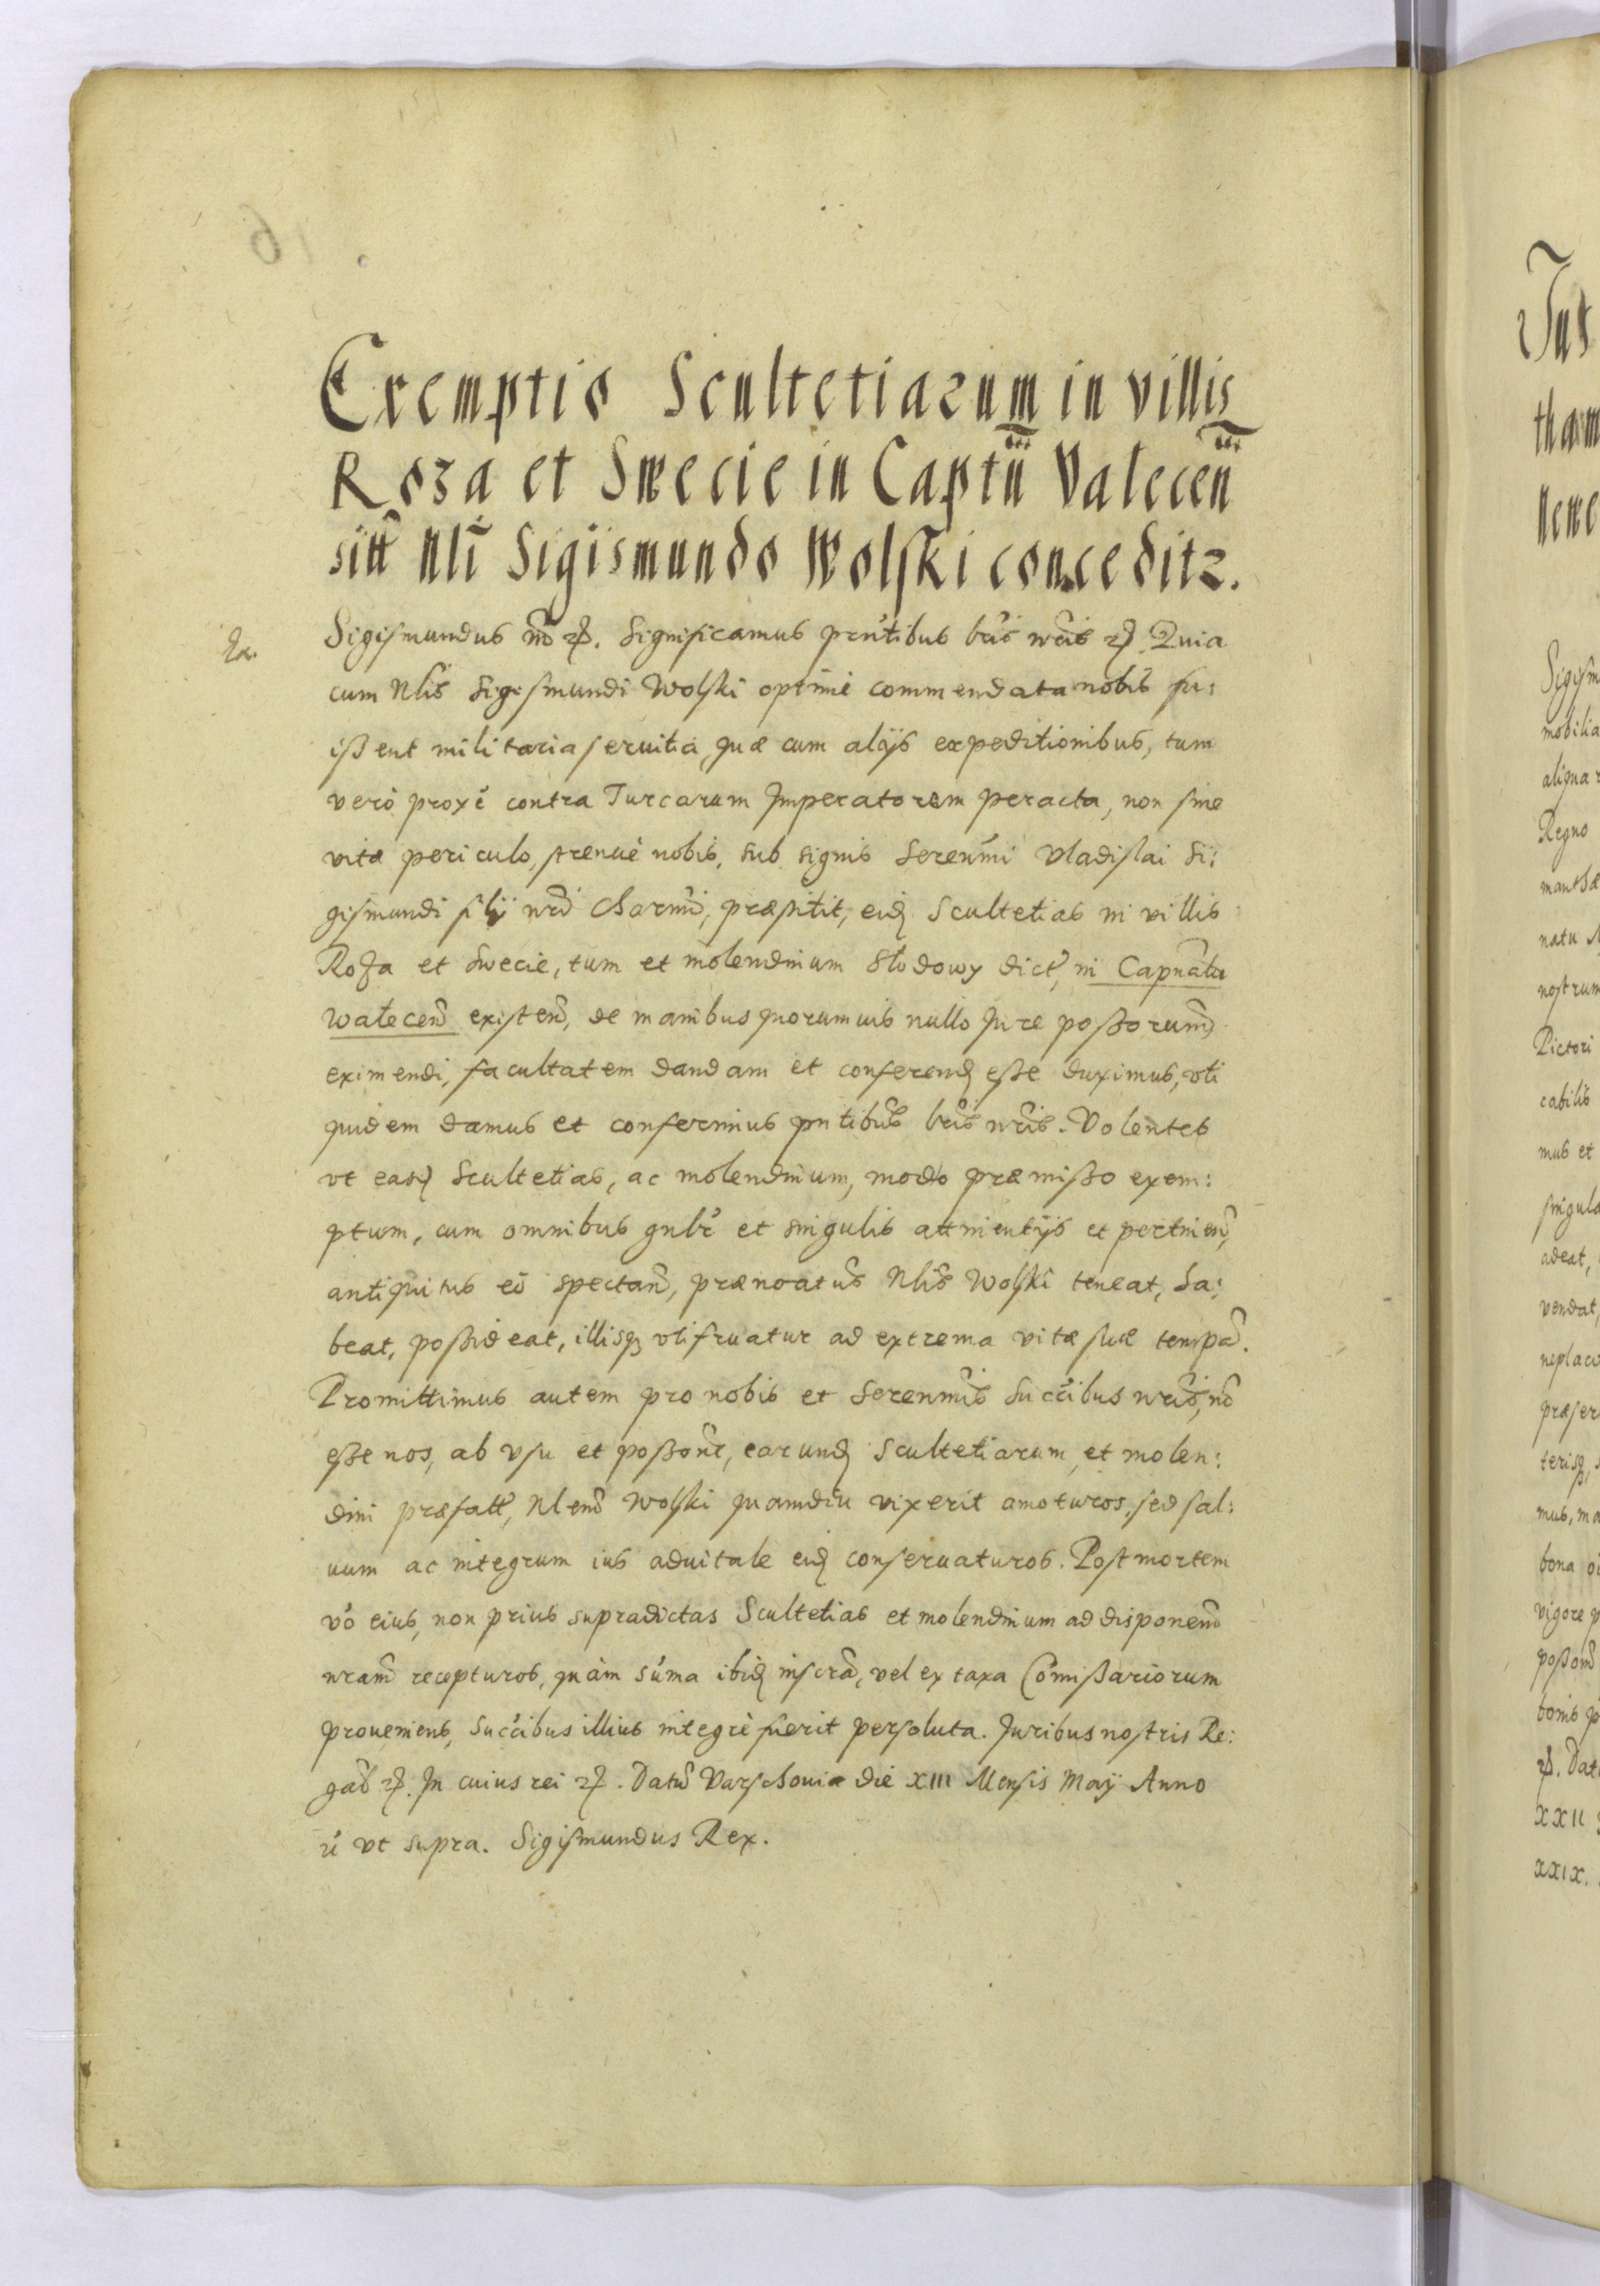 Exemptio Scultetiarum in villis
Roza et Swecie in Captu Valecen
sitt Nli Sigismundo Wolski conceditr.
Sigismundus etc. Significamus prntibus lris nris etc. Quia
cum Nlis Sigismundi Wolski optime commendata nobis fu:
issent militaria seruitia, quæ cum alijs expeditionibus, tum
verò proxe contra Turcarum Imperatorem peracta, non sine
vitæ periculo, strenuè nobis, sub signis Serenmi Vladislai Si:
gismundi filij nri Charmi, præstitit, eid Scultetias in villis
Roza et Swecie, tum et molendinum Słodowy dict, in Capnatu
Wałecen existen, de manibus quorumuis nullo Jure possorum
eximendi, facultatem dandam et conferend esse duximus, vti
quidem damus et conferimus pntibus lris nris. Volentes
vt easd Scultetias, ac molendinum, modo præmisso exem:
ptum, cum omnibus gnlr et singulis attinentijs et pertinen,
antiquitus eò spectan, prænoatus Nlis Wolski teneat, ha:
beat, possideat, illisq vtifruatur ad extrema vitæ suæ tempa.
Promittimus autem pro nobis et Serenmis Succibus nris, no
esse nos, ab vsu et possone, earund Scultetiarum, et molen:
dini præfatt, Nlem Wolski quamdiu vixerit amoturos, sed sal:
uum ac integrum ius aduitale eid conseruaturos. Post mortem
vo eius, non prius supradictas Scultetias et molendinum ad disponem
nram recepturos, quàm suma ibid inscra, vel ex taxa Comissariorum
proueniens, Succibus illius integrè fuerit persoluta. Juribus nostris Re:
gab etc. In cuius rei etc. Datu Varschouiæ die XIII Mensis Maij Anno
ut supra. Sigismundus Rex.